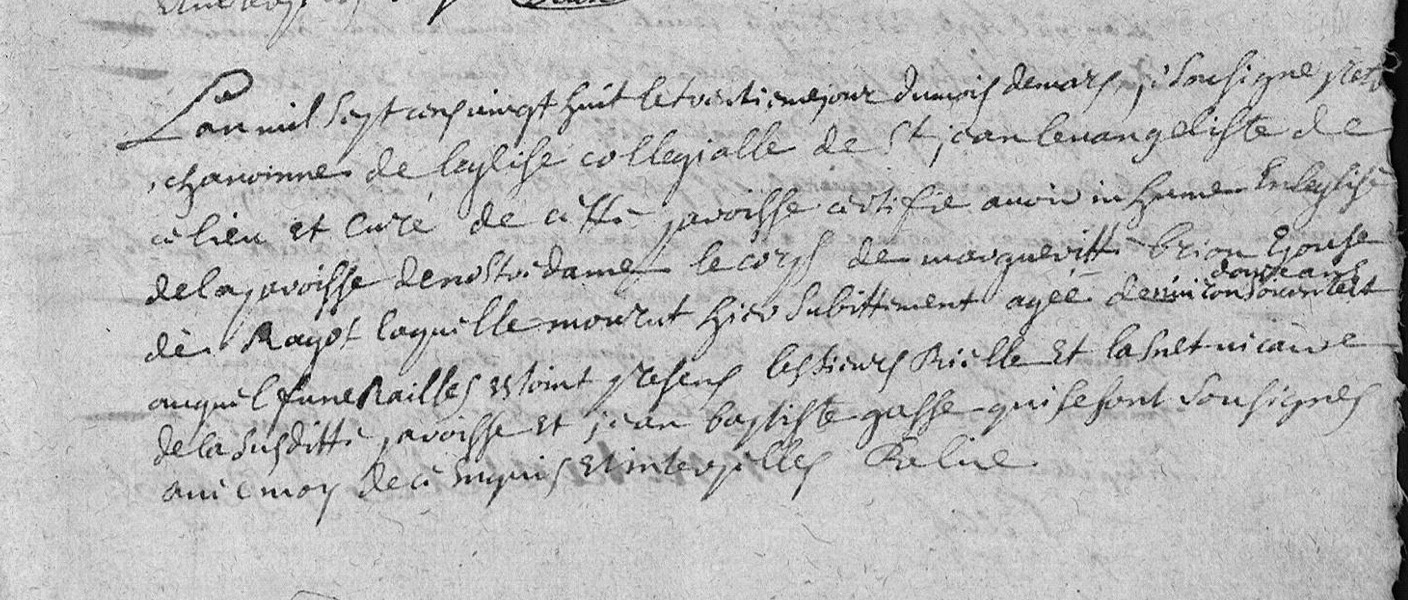 L'an mil sept cens vingt huit le trentiemejour dumois demars, je sousigne pretre
chanoinne de leglise collegialle de St jean levangeliste de
ce lieu et curé de cette paroisse certifie avoir inhume en leglise
delaparoisse denostredame le corps de margueritte brion Epouse
de Ragot laquelle mourut hier subittement agée denviron soixante
douze ans
auquel funeRailles estoint presens les sieurs Rielle Et vicaire
de la susditte paroisse Et jean baptiste gasse qui se sont sousignes
avec moy de ce enquis Et interpelles